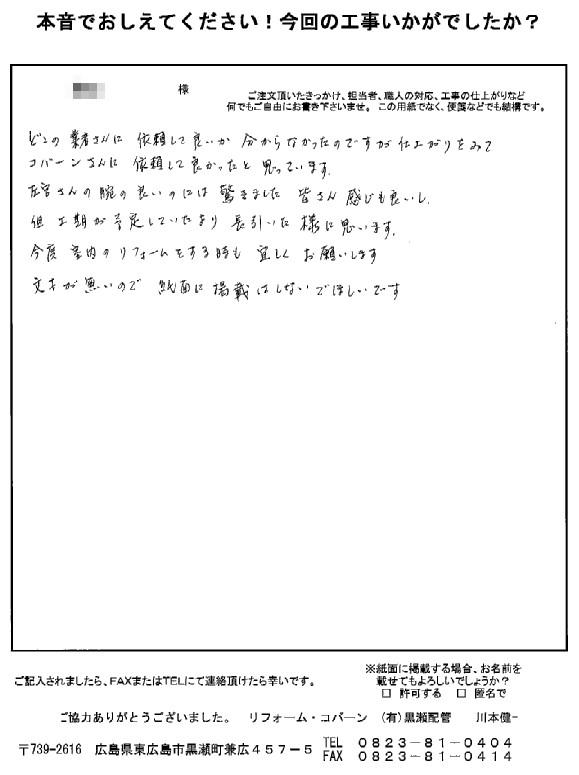 本音でおしえてください！今回の工事いかがでしたか？
様
ご注文頂いたきっかけ、担当者、職人の対応、工事の仕上がりなど
何でもご自由にお書き下さいませ。この用紙でなく、便箋などでも結構です。
どこの業者さんに 依頼して良いか 分からなかったのですが 仕上がりをみて
コバーンさんに 依頼して良かったと 思っています。
左官さんの腕の良いのには 驚きました 皆さん 感じも良いし、
但 工期が 予定していたより 長引いた 様に思います。
今度 室内のリフォームをする時も 宜しく お願いします
文才が無いので 紙面に 掲載 はしないでほしいです
ご記入されましたら、FAXまたはTELにて連絡頂けたら幸いです。
※紙面に掲載する場合、お名前を
載せてもよろしいでしょうか？
□ 許可する □ 匿名で
ご協力ありがとうございました。 リフォーム・コバーン （有）黒瀬配管 川本健一
〒739-2616 広島県東広島市黒瀬町兼広４５７－５
TEL ０８２３－８１－０４０４
FAX ０８２３－８１－０４１４